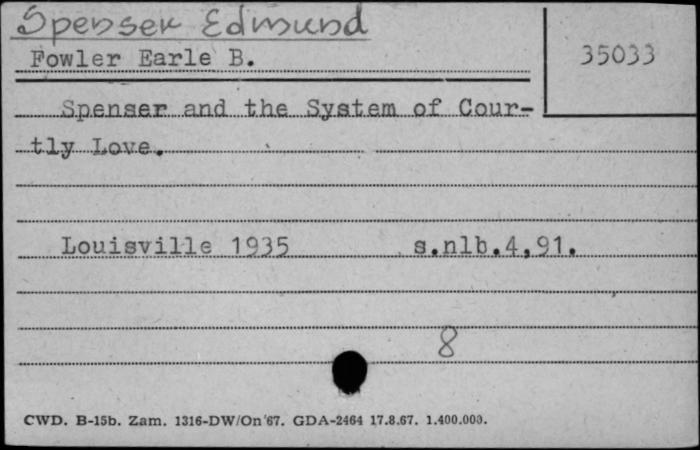 Spenser Edmund
Fowler Earle B.
35033
Spenser and the System of Cour-
tly Love.
Louisville 1935 s.nlb.4,91.
8
CWD. B-15b. Zam. 1316-DW/On'67. GDA-2464 17.8.67. 1.400.000.